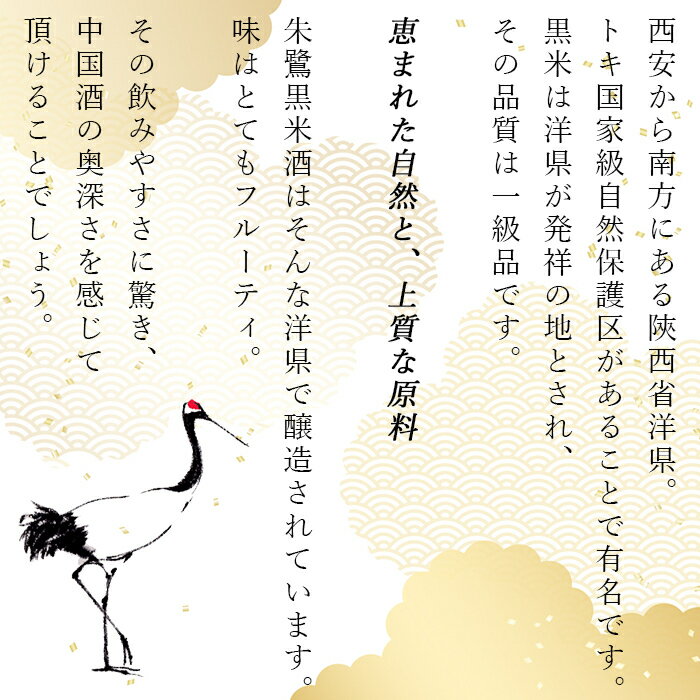 西安から南方にある陝西省洋県。
トキ国家級自然保護区があることで有名です。
黒米は洋県が発祥の地とされ、
その品質は一級品です。
恵まれた自然と、上質な原料
朱鷺黒米酒はそんな洋県で醸造されています。
味はとてもフルーティ。
その飲みやすさに驚き、
中国酒の奥深さを感じて
頂けることでしょう。